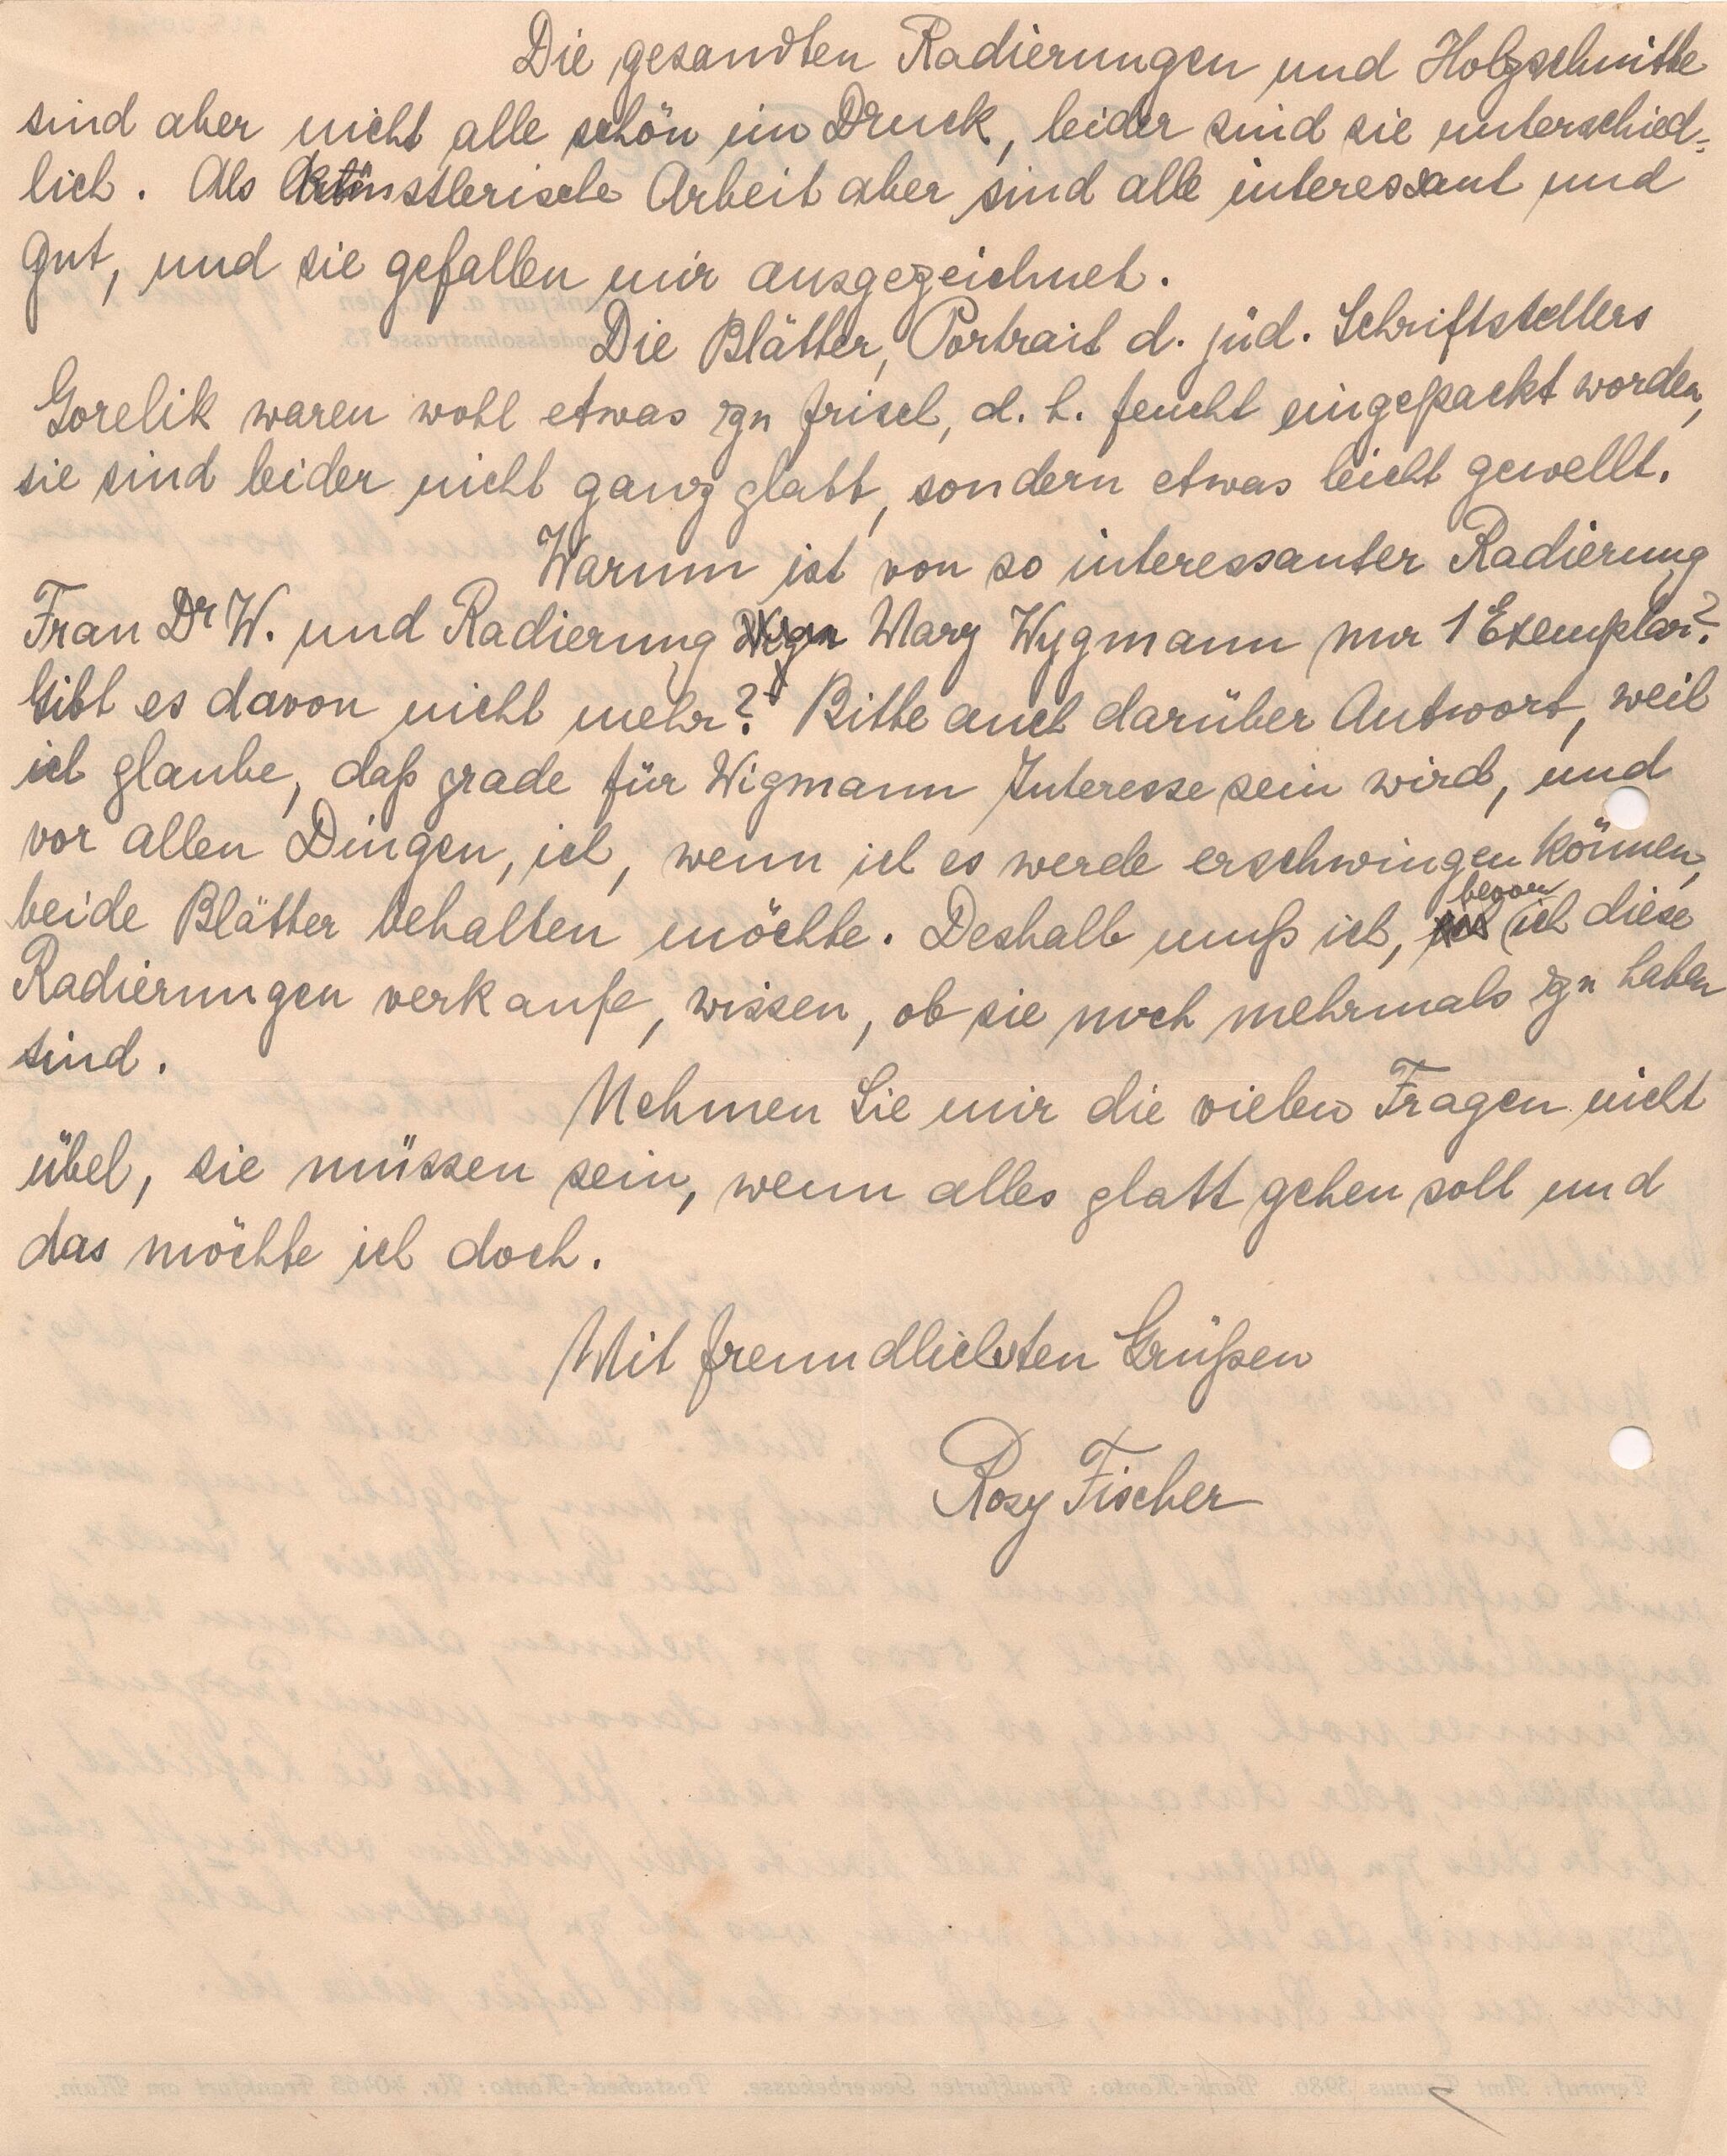 Die gesandten Radierungen und Holzschnitte
sind aber nicht alle schön im Druck, leider sind sie unterschied-
lich. Als künstlerische Arbeit aber sind alle interessant und
gut, und sie gefallen mir ausgezeichnet.
Die Blätter, Portrait d. jüd. Schriftstellers
Gorelik waren wohl etwas zu frisch, d. h. feucht eingepackt worden,
sie sind leider nicht ganz glatt, sondern etwas leicht gewellt.
Warum ist von so interessanter Radierung
Frau Dr W. und Radierung Mary Wygmann nur 1 Exemplar?
Gibt es davon nicht mehr? Bitte auch darüber Antwort, weil
ich glaube, daß grade für Wigmann Interesse sein wird, und
vor allen Dingen, ich, wenn ich es werde erschwingen können,
beide Blätter behalten möchte. Deshalb muß ich, bevor ich diese
Radierungen verkaufe, wissen, ob sie noch mehrmals zu haben
sind.
Nehmen Sie mir die vielen Fragen nicht
übel, sie müssen sein, wenn alles glatt gehen soll und
das möchte ich doch.
Mit freundlichsten Grüßen
Rosy Fischer